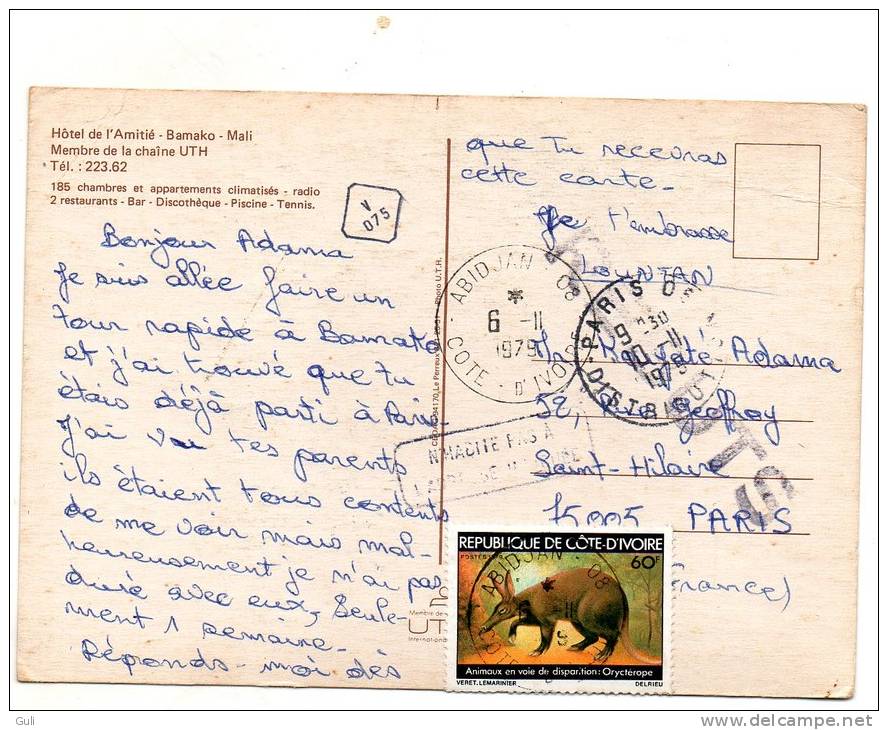 Hôtel de l'Amitié - Bamako - Mali
Membre de la chaîne UTH
Tél. : 223.62
185 chambres et appartements climatisés - radio
2 restaurants - Bar - Discothèque - Piscine - Tennis.
V
075
Bonjour Adama
Je suis allée faire un
tour rapide à Bamako
et j'ai trouvé que tu
étais déjà parti à Paris
J'ai vu tes parents
ils étaient tous contents
de me voir mais mal-
heureusement je n'ai pas
duré avec eux, seule-
ment 1 semaine.
Réponds-moi dès
que tu recevras
cette carte.
Je t'embrasse
ABIDJAN 08
*
6 -11
1979
COTE - D'IVOIRE
PARIS
1979
DISTRIBUTION
Adama
52, Rue Geoffroy
Saint-Hilaire
75005 PARIS
(France)
N'HABITE PAS A
Photo U.T.H.
94170 Le Perreux
Membre de
UT
International
REPUBLIQUE DE CÔTE-D'IVOIRE
POSTES
60F
ABIDJAN 08
Animaux en voie de disparition: Oryctérope
VERET, LEMARINIER DELRIEU
Guli
www.delcampe.net